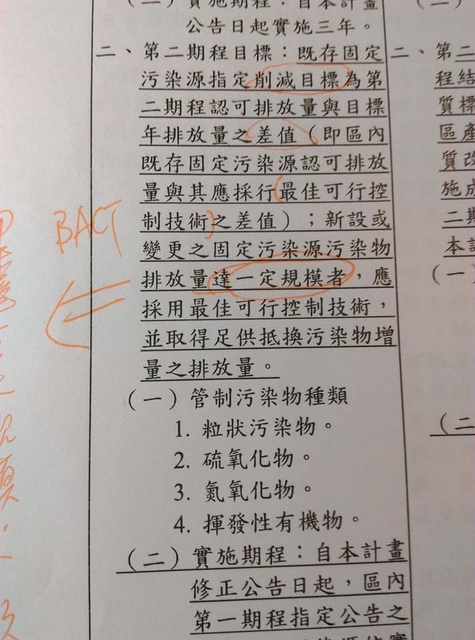 (二)實施期程：自本計畫
公告日起實施三年。
二、第二期程目標：既存固定
污染源指定削減目標為第
二期程認可排放量與目標
年排放量之差值（即區內
既存固定污染源認可排放
量與其應採行最佳可行控
制技術之差值）；新設或
變更之固定污染源污染物
排放量達一定規模者，應
採用最佳可行控制技術，
並取得足供抵換污染物增
量之排放量。
(一)管制污染物種類
1. 粒狀污染物。
2. 硫氧化物。
3. 氮氧化物。
4. 揮發性有機物。
(二)實施期程：自本計畫
修正公告日起，區內
第一期程指定公告之
BACT
二、第二
程結
質標
區產
質改
施成
二期
本計
(一)
(二